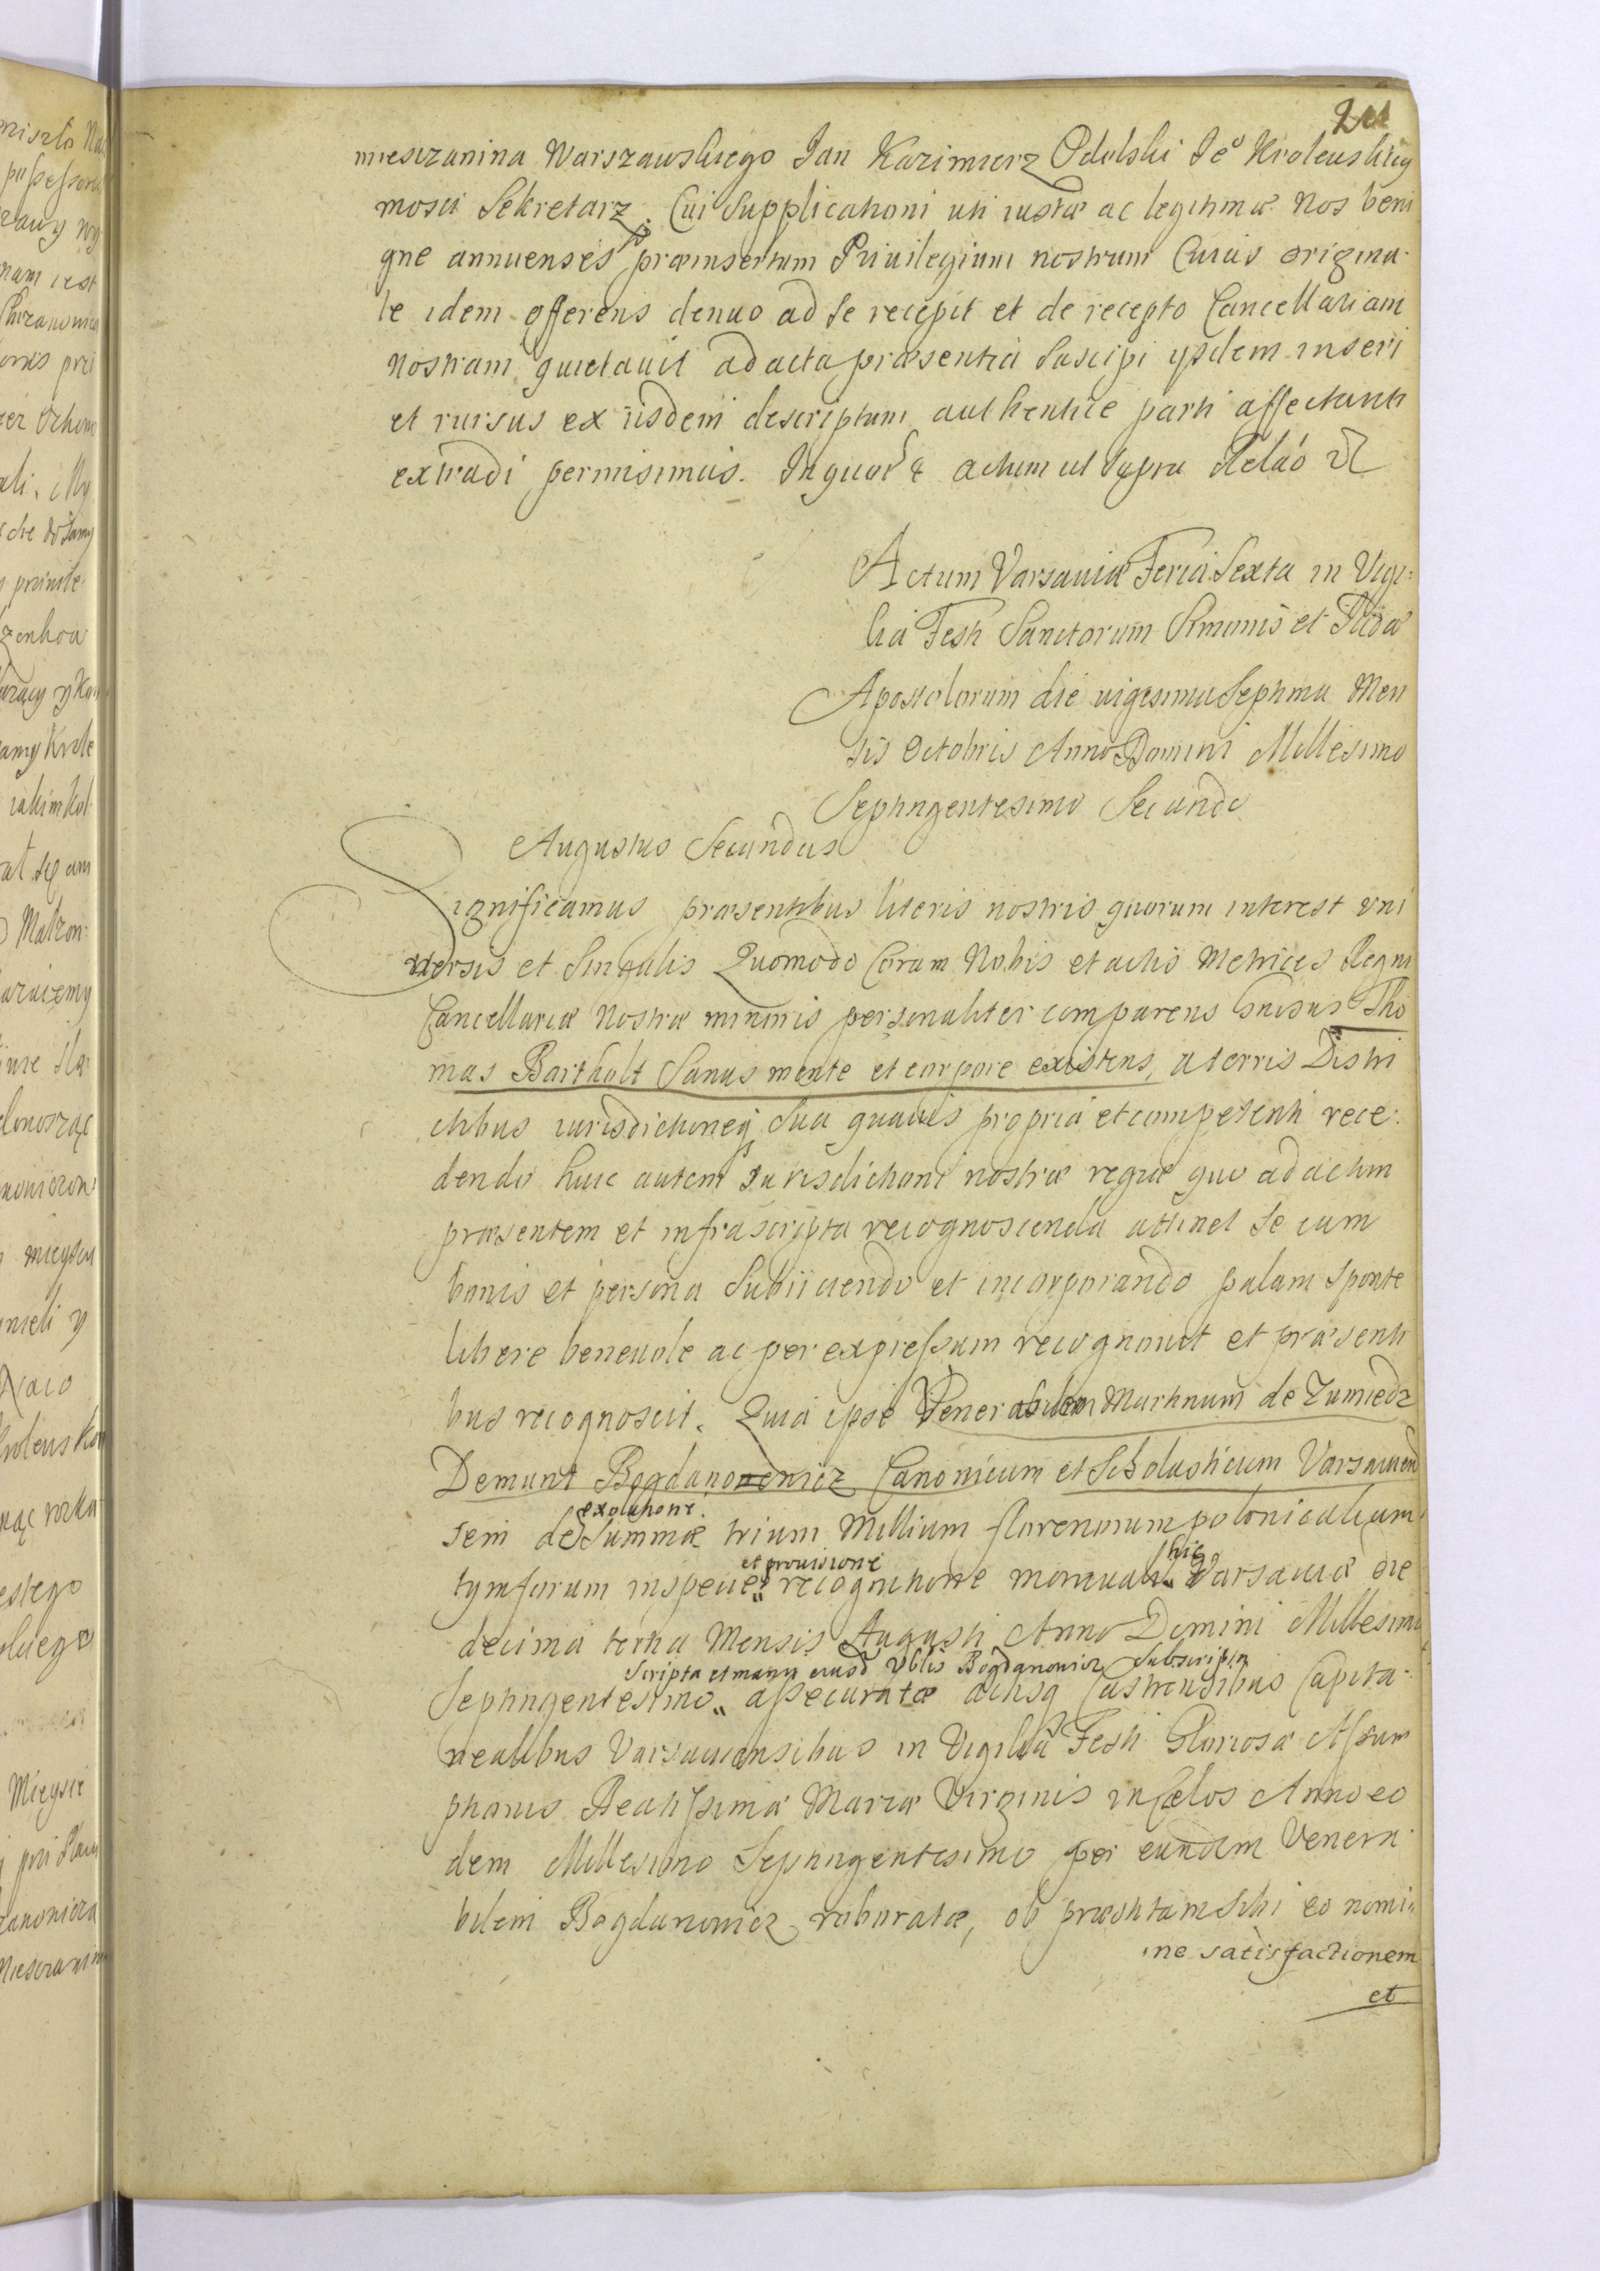 mieszczanina Warszawskiego Jan Kazimierz Odolski Je⁰ Krolewskiey
mosci Sekretarz. Cui Supplicationi uti iustæ ac legitimæ Nos beni
gne annuenses præinsertum Priuilegium nostrum Cuius origina-
le idem offerens denuo ad se recepit et de recepto Cancellariam
nostram quietauit ad acta præsentia Suscipi ysdem inseri
et rursus ex iisdem descriptum authentice parti affectanti
extradi permisimus. In quor̃ & actum ut Supra Relaõ
Actum Varsauiæ Feria Sexta in Vigi=
lia Festi Sanctorum Simonis et Judæ
Apostolorum die uigesima Septima Men
sis Octobris Anno Domini Millesimo
Septingentesimo Secundo
Augustus Secundus
Significamus præsentibus literis nostris quorum interest vni
uersis et Singulis Quomodo Coram Nobis et actis Metrices Regni
Cancellariæ Nostræ minoris personaliter comparens Tho
mas Bartholt Sanus mente et corpore existens, a terris Distri
ctibus iurisdictioneq Sua quauis propria et competenti rece-
dendo huic autem Jurisdictioni nostræ regiæ quo ad actum
præsentem et infrascripta recognoscenda attinet Se cum
bonis et persona Subiiciendo et incorporando palam Sponte
libere beneuole ac per expressum recognouit et præsenti
bus recognoscit. Quia ipse Venerabilem Martinum de Zumiedz
Demunt Bogdanowicz Canonicum et Scholasticum Varsauien
sem de exolutione Summæ trium Millium florenorum polonicalium
tymforum in specie et prouisione recognitione hic Varsauiæ die
decima tertia Mensis Augusti Anno Domini Millesimo
Scripta et manu eiusd Vblis Bogdanowicz Subscripta
Septingentesimo assecuratæ actisq Castrensibus Capita-
nealibus Varsauiensibus in Vigilia Festi Gloriosæ Assum
ptionis Beatissimæ Mariæ Virginis in Cælos Anno eo
dem Millesimo Septingentesimo per eundem Venera-
bilem Bogdanowicz roboratæ, ob præstitam Sibi eo nomi-
ne satisfactionem
et